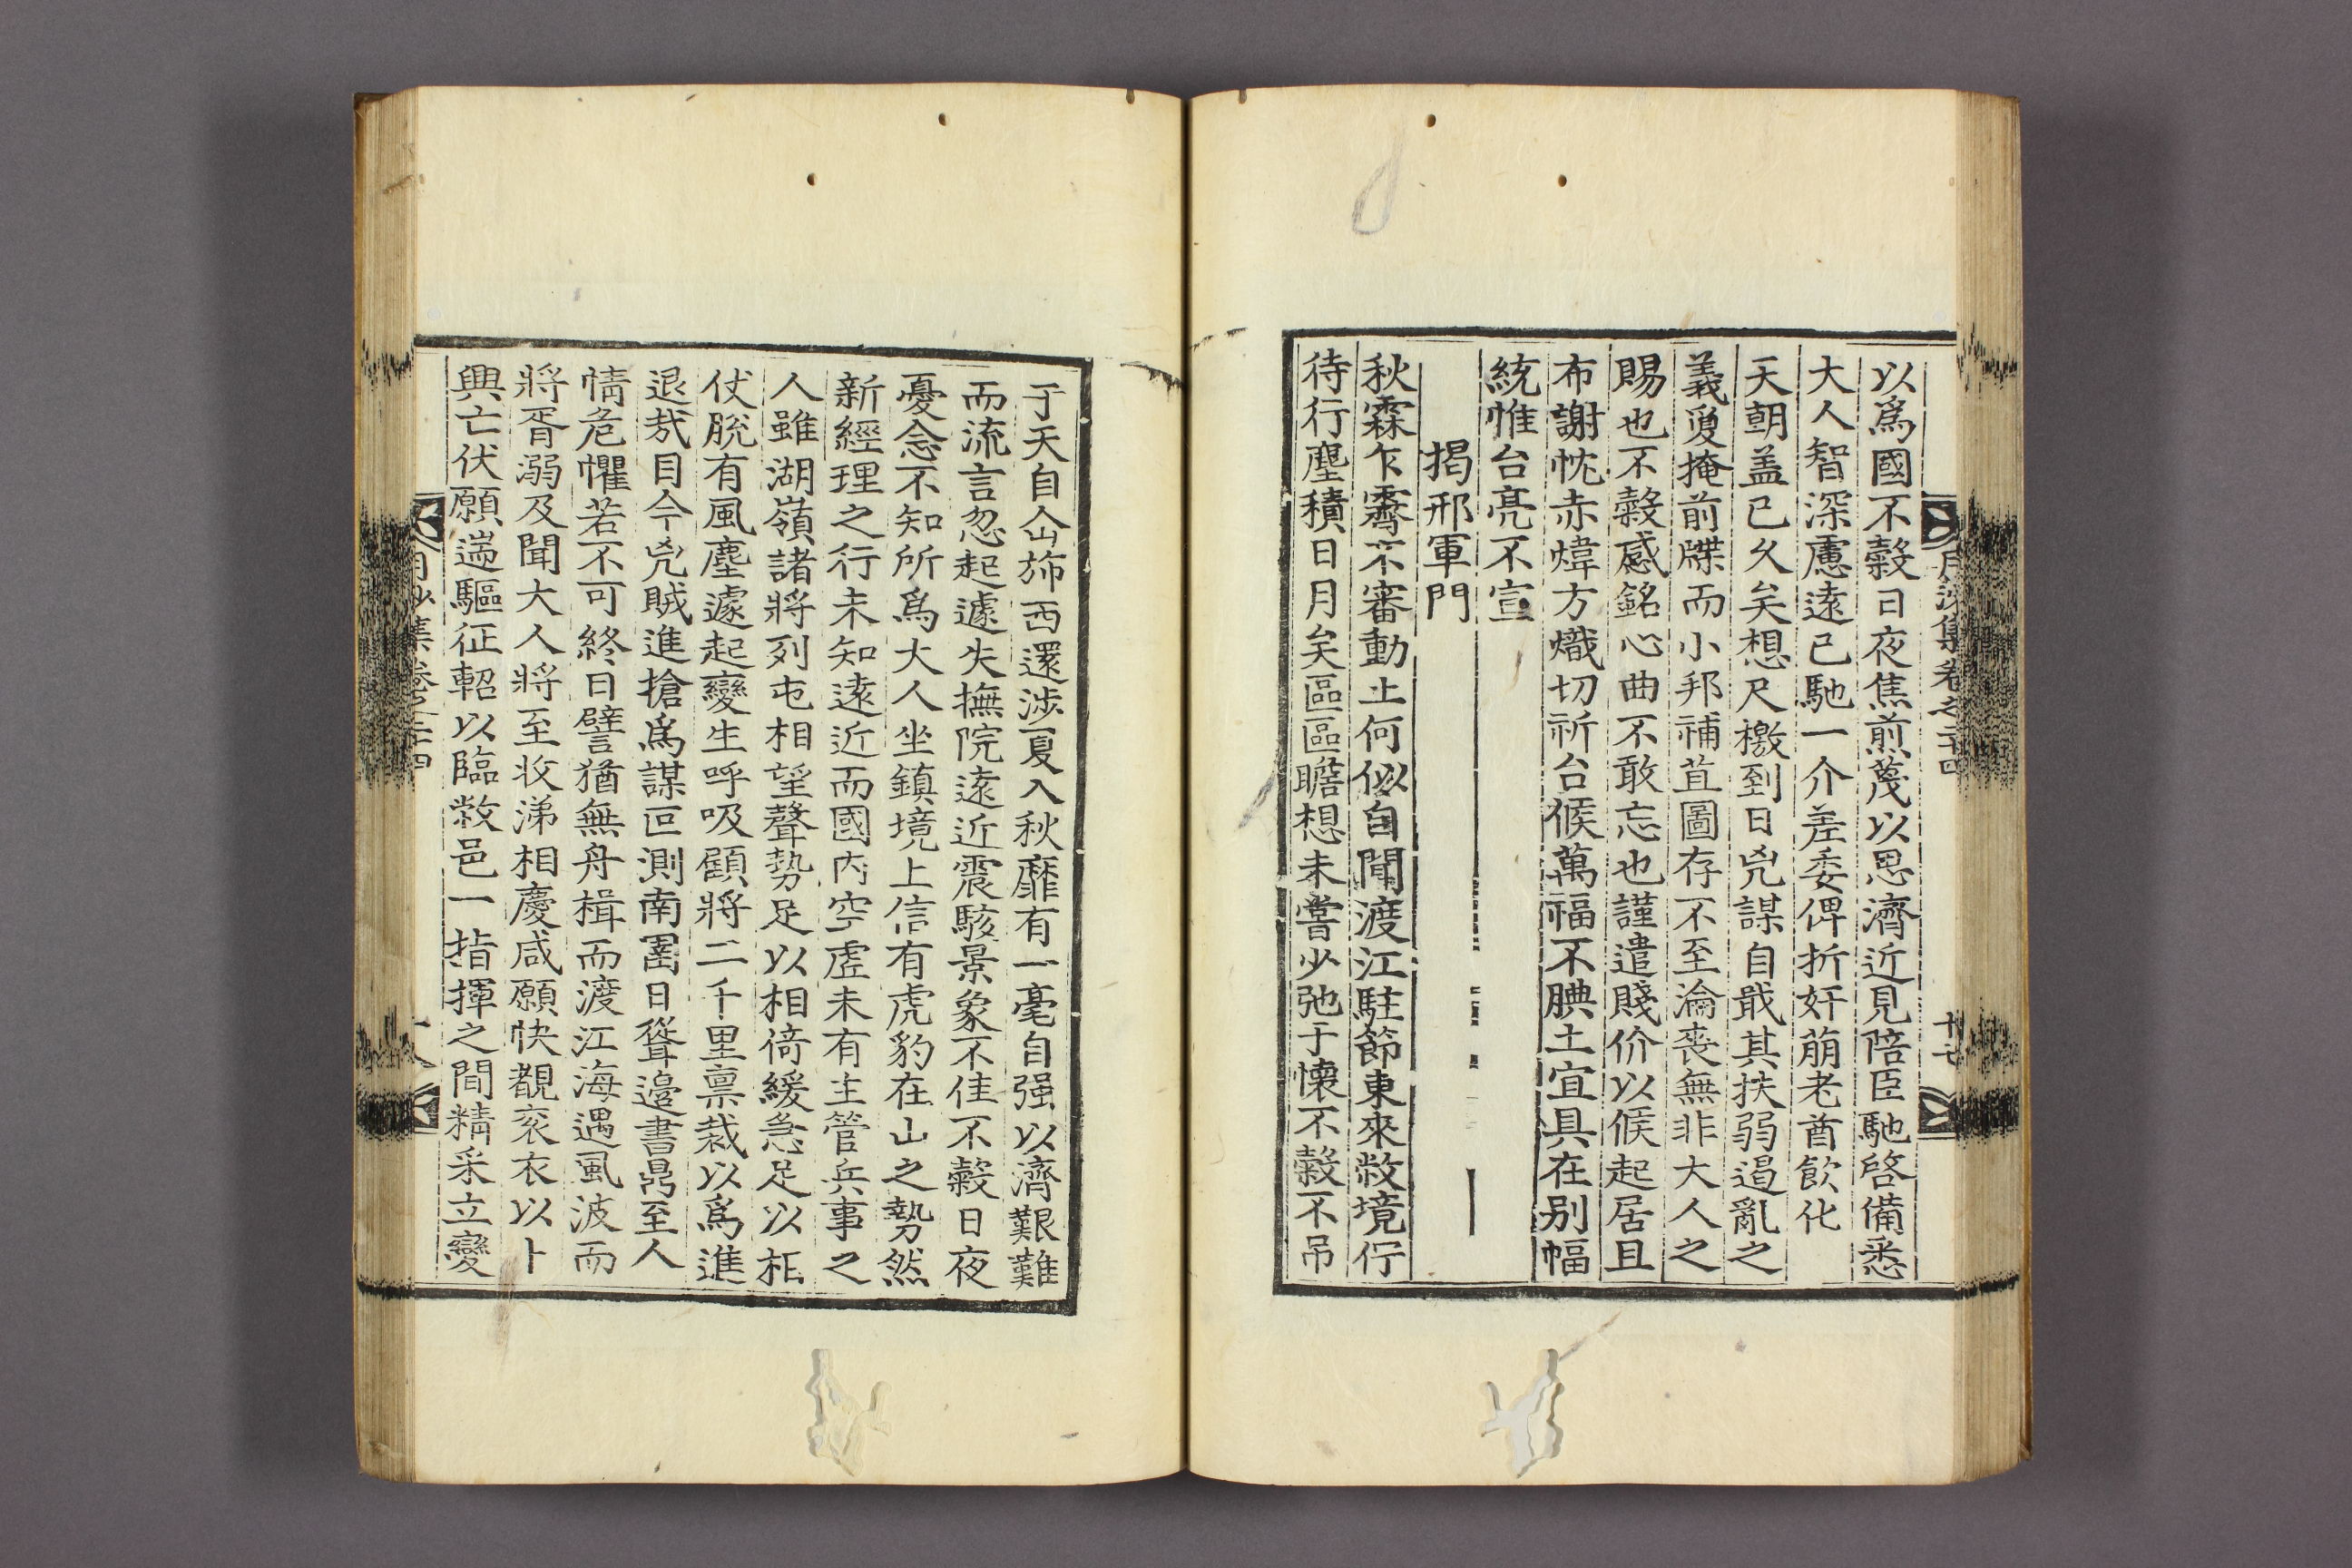 以爲國不穀日夜焦煎蔑以思濟近見陪臣馳啓備悉
大人智深慮遠已馳一介差委俾折奸萠老酋飮化
天朝盖已久矣想尺檄到日兇謀自戢其扶弱遏亂之
義夐掩前牒而小邦補苴圖存不至淪喪無非大人之
賜也不穀感銘心曲不敢忘也謹遣賤价以候起居且
布謝忱赤煒方熾切祈台候萬福不腆土宜具在别幅
統惟台亮不宣
揭邢軍門
秋霖乍霽不審動止何似自聞渡江駐節東來敝境佇
待行塵積日月矣區區瞻想未嘗少弛于懷不穀不吊
于天自仚斾西還涉夏入秋靡有一毫自强以濟艱難
而流言忽起遽失撫院遠近震駭景象不佳不穀日夜
憂念不知所爲大人坐鎭境上信有虎豹在山之勢然
新經理之行未知遠近而國內空虛未有主管兵事之
人雖湖嶺諸將列屯相望聲勢足以相倚緩急足以柜
仗脫有風塵遽起變生呼吸顧將二千里禀裁以爲進
退哉目今兇賊進搶爲謀叵測南圉日聳邉書鼎至人
情危懼若不可終日譬猶無舟楫而渡江海遇風波而
將胥溺及聞大人將至收涕相慶咸願快覩衮衣以卜
興亡伏願遄驅征軺以臨敝邑一指揮之間精采立變
月沙集卷之二十四
十七